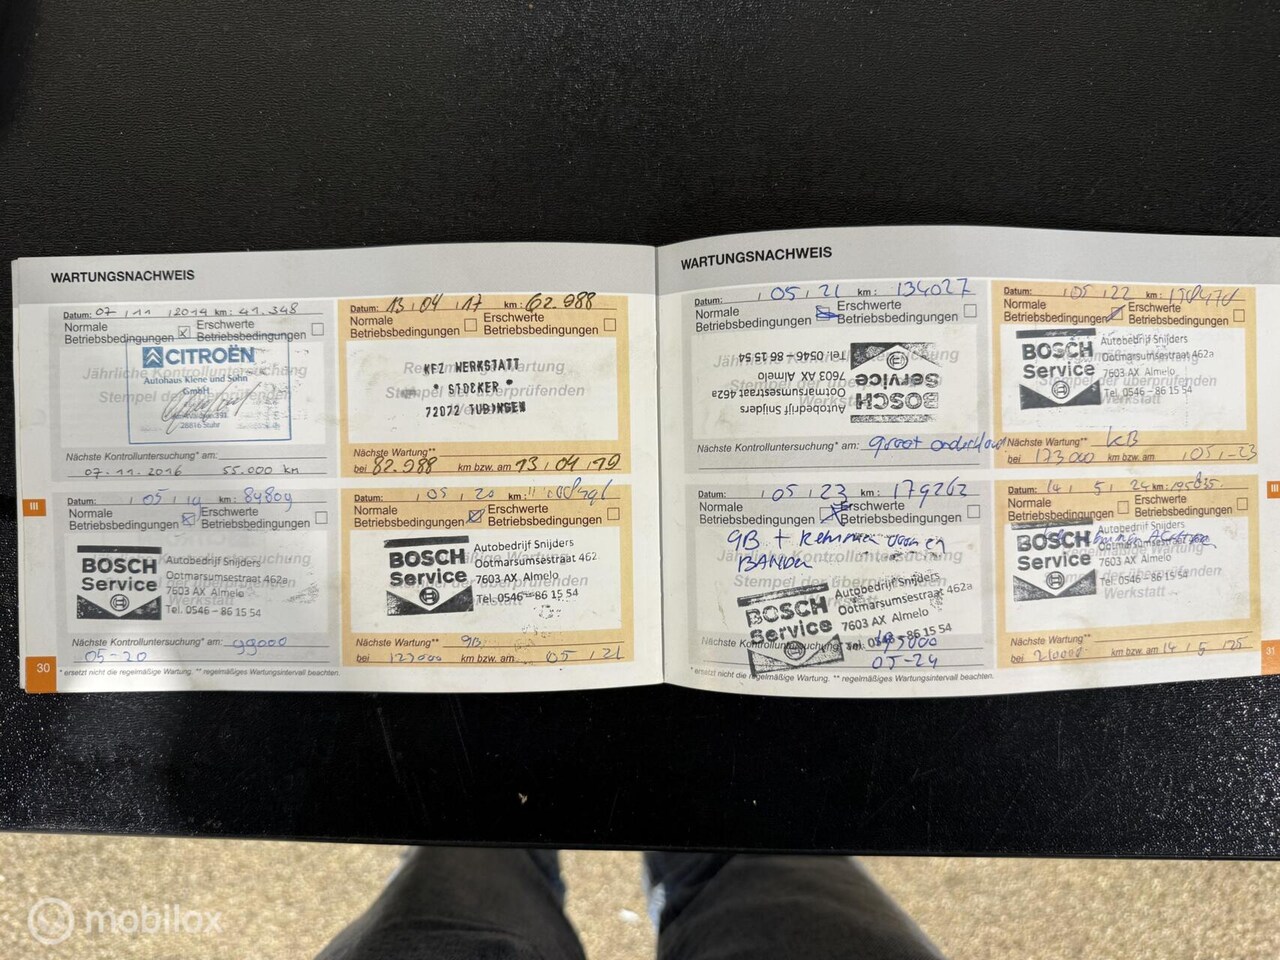 WARTUNGSNACHWEIS
Datum: 07 11 2014 km: 41.348
Normale
Betriebsbedingungen
Erschwerte
Betriebsbedingungen
CITROËN
Jährliche Kontrolluntersuchung
Autohaus Klene und Sohn
GmbH
Stempel der überprüfenden
28816 Stuhr
Nächste Kontrolluntersuchung* am:
07.11.2016 55.000 km
Datum: 13 04 17 km: 62.988
Normale
Betriebsbedingungen
Erschwerte
Betriebsbedingungen
KFZ WERKSTATT
* STOCKER *
72072 TUBINGEN
Nächste Wartung**
bei 82.988 km bzw. am 13 04 19
III
Datum: 05 19 km: 84809
Normale
Betriebsbedingungen
Erschwerte
Betriebsbedingungen
BOSCH
Service
Autobedrijf Snijders
Ootmarsumsestraat 462a
7603 AX Almelo
Tel. 0546 - 86 15 54
Nächste Kontrolluntersuchung* am: 99000
05-20
Datum: 05 20 km:
Normale
Betriebsbedingungen
Erschwerte
Betriebsbedingungen
BOSCH
Service
Autobedrijf Snijders
Ootmarsumsestraat 462
7603 AX Almelo
Tel. 0546 - 86 15 54
Nächste Wartung** gB
bei 123000 km bzw. am 05 21
30
* ersetzt nicht die regelmäßige Wartung. ** regelmäßiges Wartungsintervall beachten.
WARTUNGSNACHWEIS
Datum: 05 21 km: 134027
Normale
Betriebsbedingungen
Erschwerte
Betriebsbedingungen
Autobedrijf Snijders
Ootmarsumsestraat 462a
7603 AX Almelo
Tel. 0546 - 86 15 54
BOSCH
Service
Nächste Kontrolluntersuchung* am: groot onderhoud
Datum: 05 22 km:
Normale
Betriebsbedingungen
Erschwerte
Betriebsbedingungen
BOSCH
Service
Autobedrijf Snijders
Ootmarsumsestraat 462a
7603 AX Almelo
Tel. 0546 - 86 15 54
Nächste Wartung** KB
bei 173000 km bzw. am 05 - 23
Datum: 05 23 km: 179262
Normale
Betriebsbedingungen
Erschwerte
Betriebsbedingungen
gB + Remmen voor en
BANDEN
Jährliche Kontrolluntersuchung
Stempel der überprüfenden
Werkstatt
BOSCH
Service
Autobedrijf Snijders
Ootmarsumsestraat 462a
7603 AX Almelo
Tel. 0546 - 86 15 54
Nächste Kontrolluntersuchung* am: 195000
05-24
Datum: 14 5 24 km:
Normale
Betriebsbedingungen
Erschwerte
Betriebsbedingungen
BOSCH
Service
Autobedrijf Snijders
Ootmarsumsestraat 462a
7603 AX Almelo
Tel. 0546 - 86 15 54
Nächste Wartung**
bei 210000 km bzw. am 14 5 25
III
31
* ersetzt nicht die regelmäßige Wartung. ** regelmäßiges Wartungsintervall beachten.
mobilox